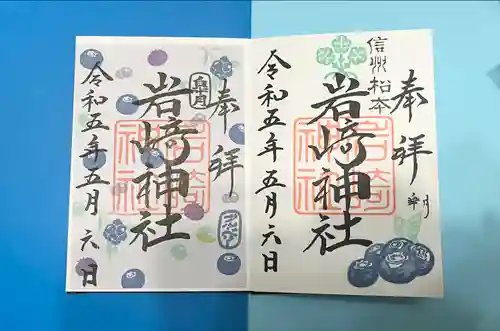 信州松本
奉拝
岩﨑神社
岩崎神社
令和五年五月六日
奉拝
皐月
岩﨑神社
岩崎神社
令和五年五月六日